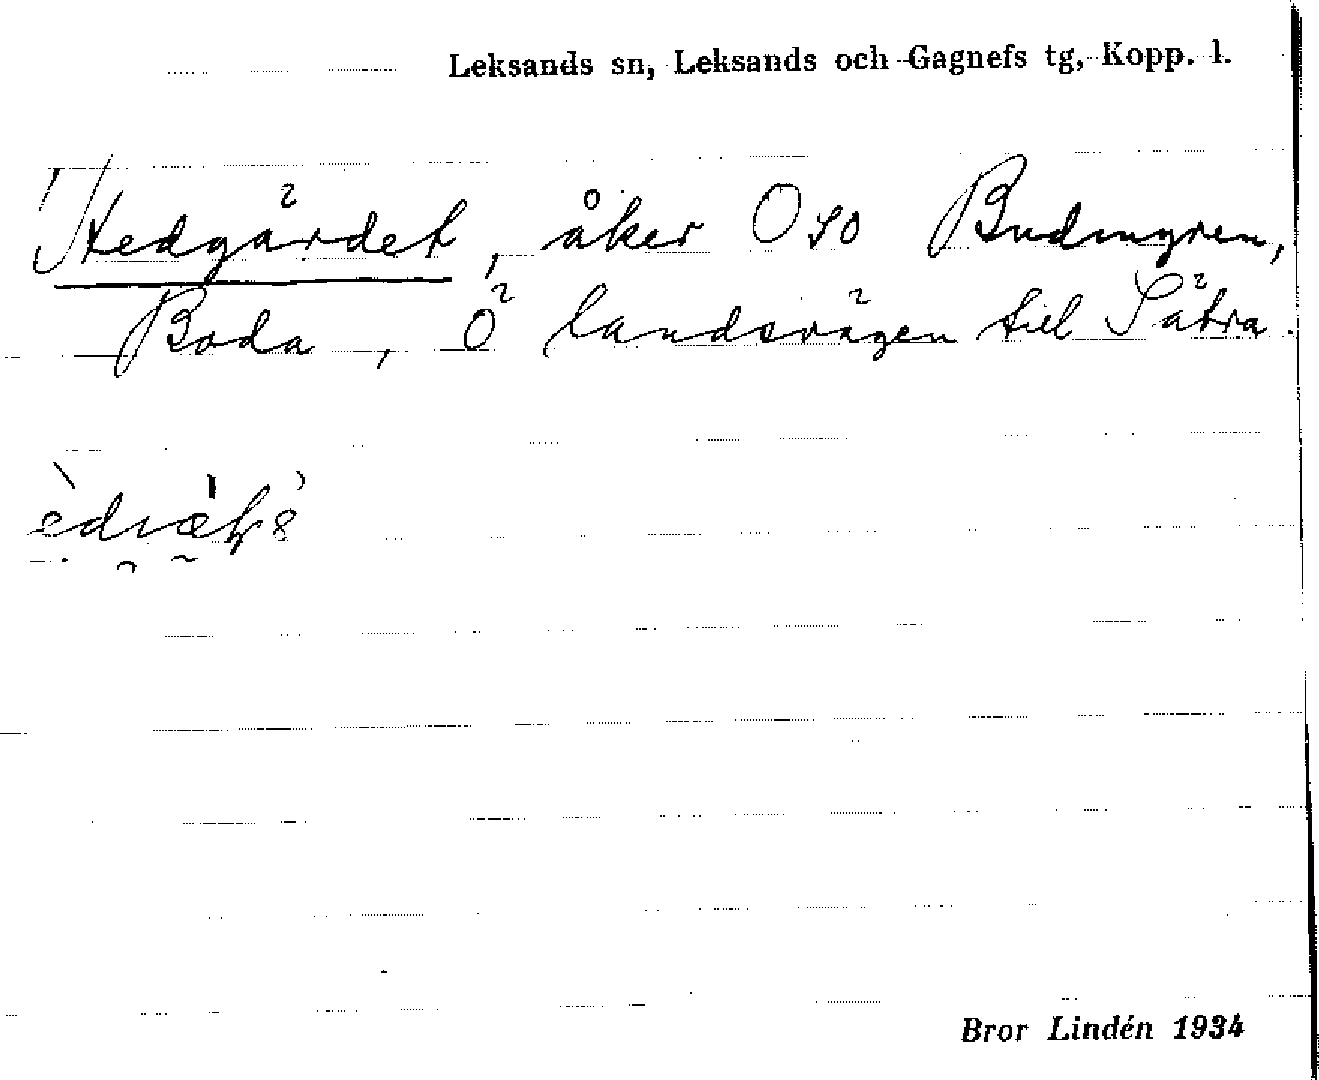 Leksands sn, Leksands och Gagnefs tg, Kopp. l.
Hedgärdet, åker OSO Budmyren,
Boda, Ö landsvägen till Sätra.
Bror Lindén 1934